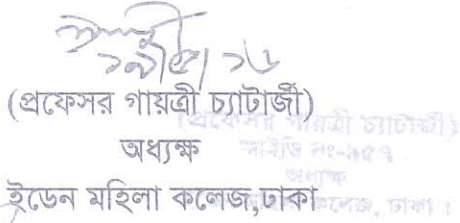 ১৯|৫| ১৬
(প্রফেসর গায়ত্রী চ্যাটার্জী)
অধ্যক্ষ
ইডেন মহিলা কলেজ,ঢাকা
(প্রফেসর গায়ত্রী চ্যাটার্জী)
আইডি নং-৯৫৭
অধ্যক্ষ
ইডেন মহিলা কলেজ, ঢাকা ।